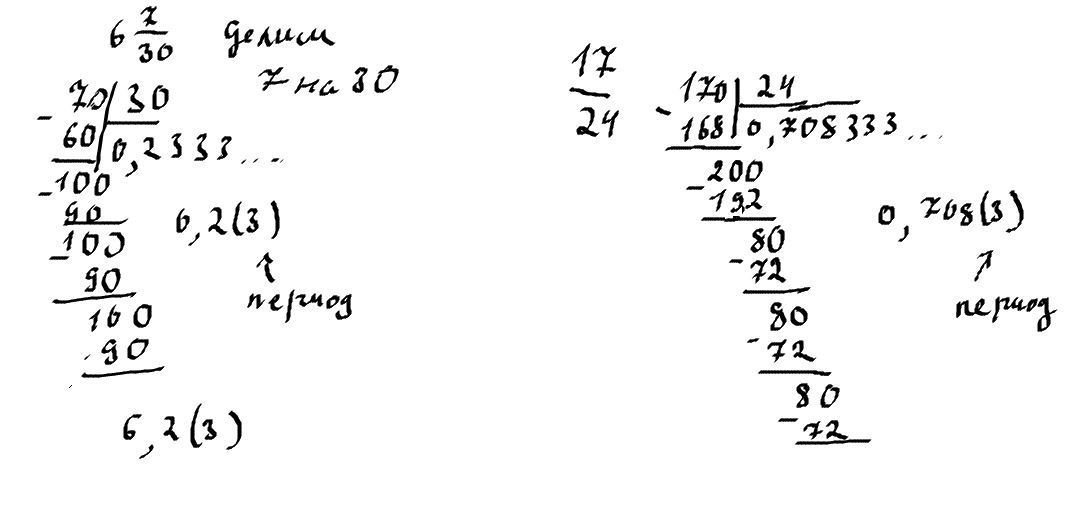 6 7/30 делим
7 на 30
- 70 | 30
60 | 0,2333....
- 100
90
- 100
90
100
90
0,2(3)
↑
период
6,2(3)
17/24
- 170 | 24
168 | 0,708333...
- 200
192
- 80
72
- 80
72
80
- 72
0,708(3)
↑
период